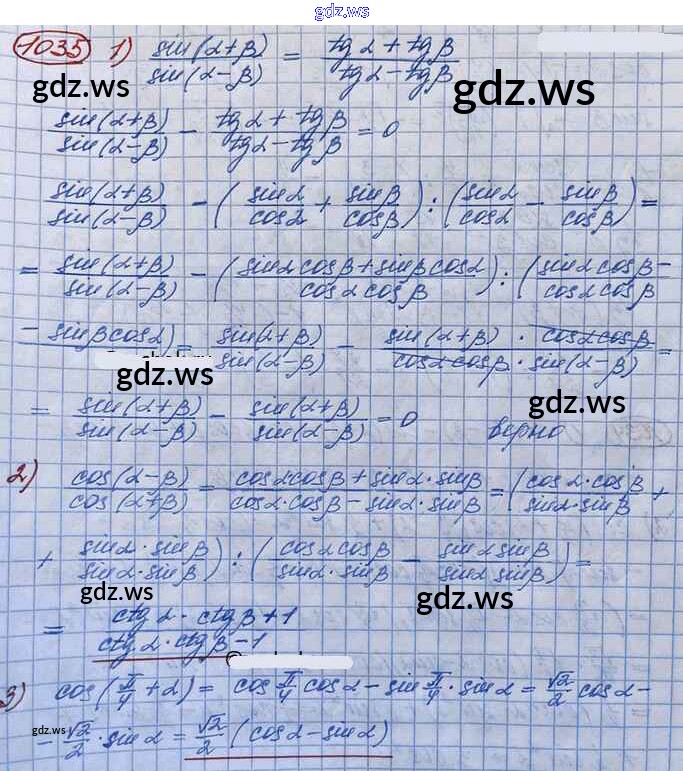 gdz.ws
1035 1) sin(α+β)/sin(α-β) = (tgα + tgβ)/(tgα - tgβ)
gdz.ws gdz.ws
sin(α+β)/sin(α-β) - (tgα + tgβ)/(tgα - tgβ) = 0
sin(α+β)/sin(α-β) - (sinα/cosα + sinβ/cosβ) : (sinα/cosα - sinβ/cosβ) =
= sin(α+β)/sin(α-β) - ((sinα cosβ + sinβ cosα)/(cosα cosβ)) : ((sinα cosβ -)/(cosα cosβ)
- sinβ cosα) = sin(α+β)/sin(α-β) - (sin(α+β) · cosα cosβ)/(cosα cosβ · sin(α-β)) =
gdz.ws
= sin(α+β)/sin(α-β) - sin(α+β)/sin(α-β) = 0 верно
gdz.ws
2) cos(α-β)/cos(α+β) = (cosα·cosβ + sinα·sinβ)/(cosα·cosβ - sinα·sinβ) = ((cosα·cosβ)/(sinα·sinβ) +
+ (sinα·sinβ)/(sinα·sinβ)) : ((cosα cosβ)/(sinα·sinβ) - (sinα sinβ)/(sinα sinβ)) =
gdz.ws gdz.ws
= (ctgα·ctgβ+1)/(ctgα·ctgβ-1)
3) cos(π/4 + α) = cos π/4 cosα - sin π/4 · sinα = √2/2 cosα -
gdz.ws
- √2/2 · sinα = √2/2 (cosα - sinα)